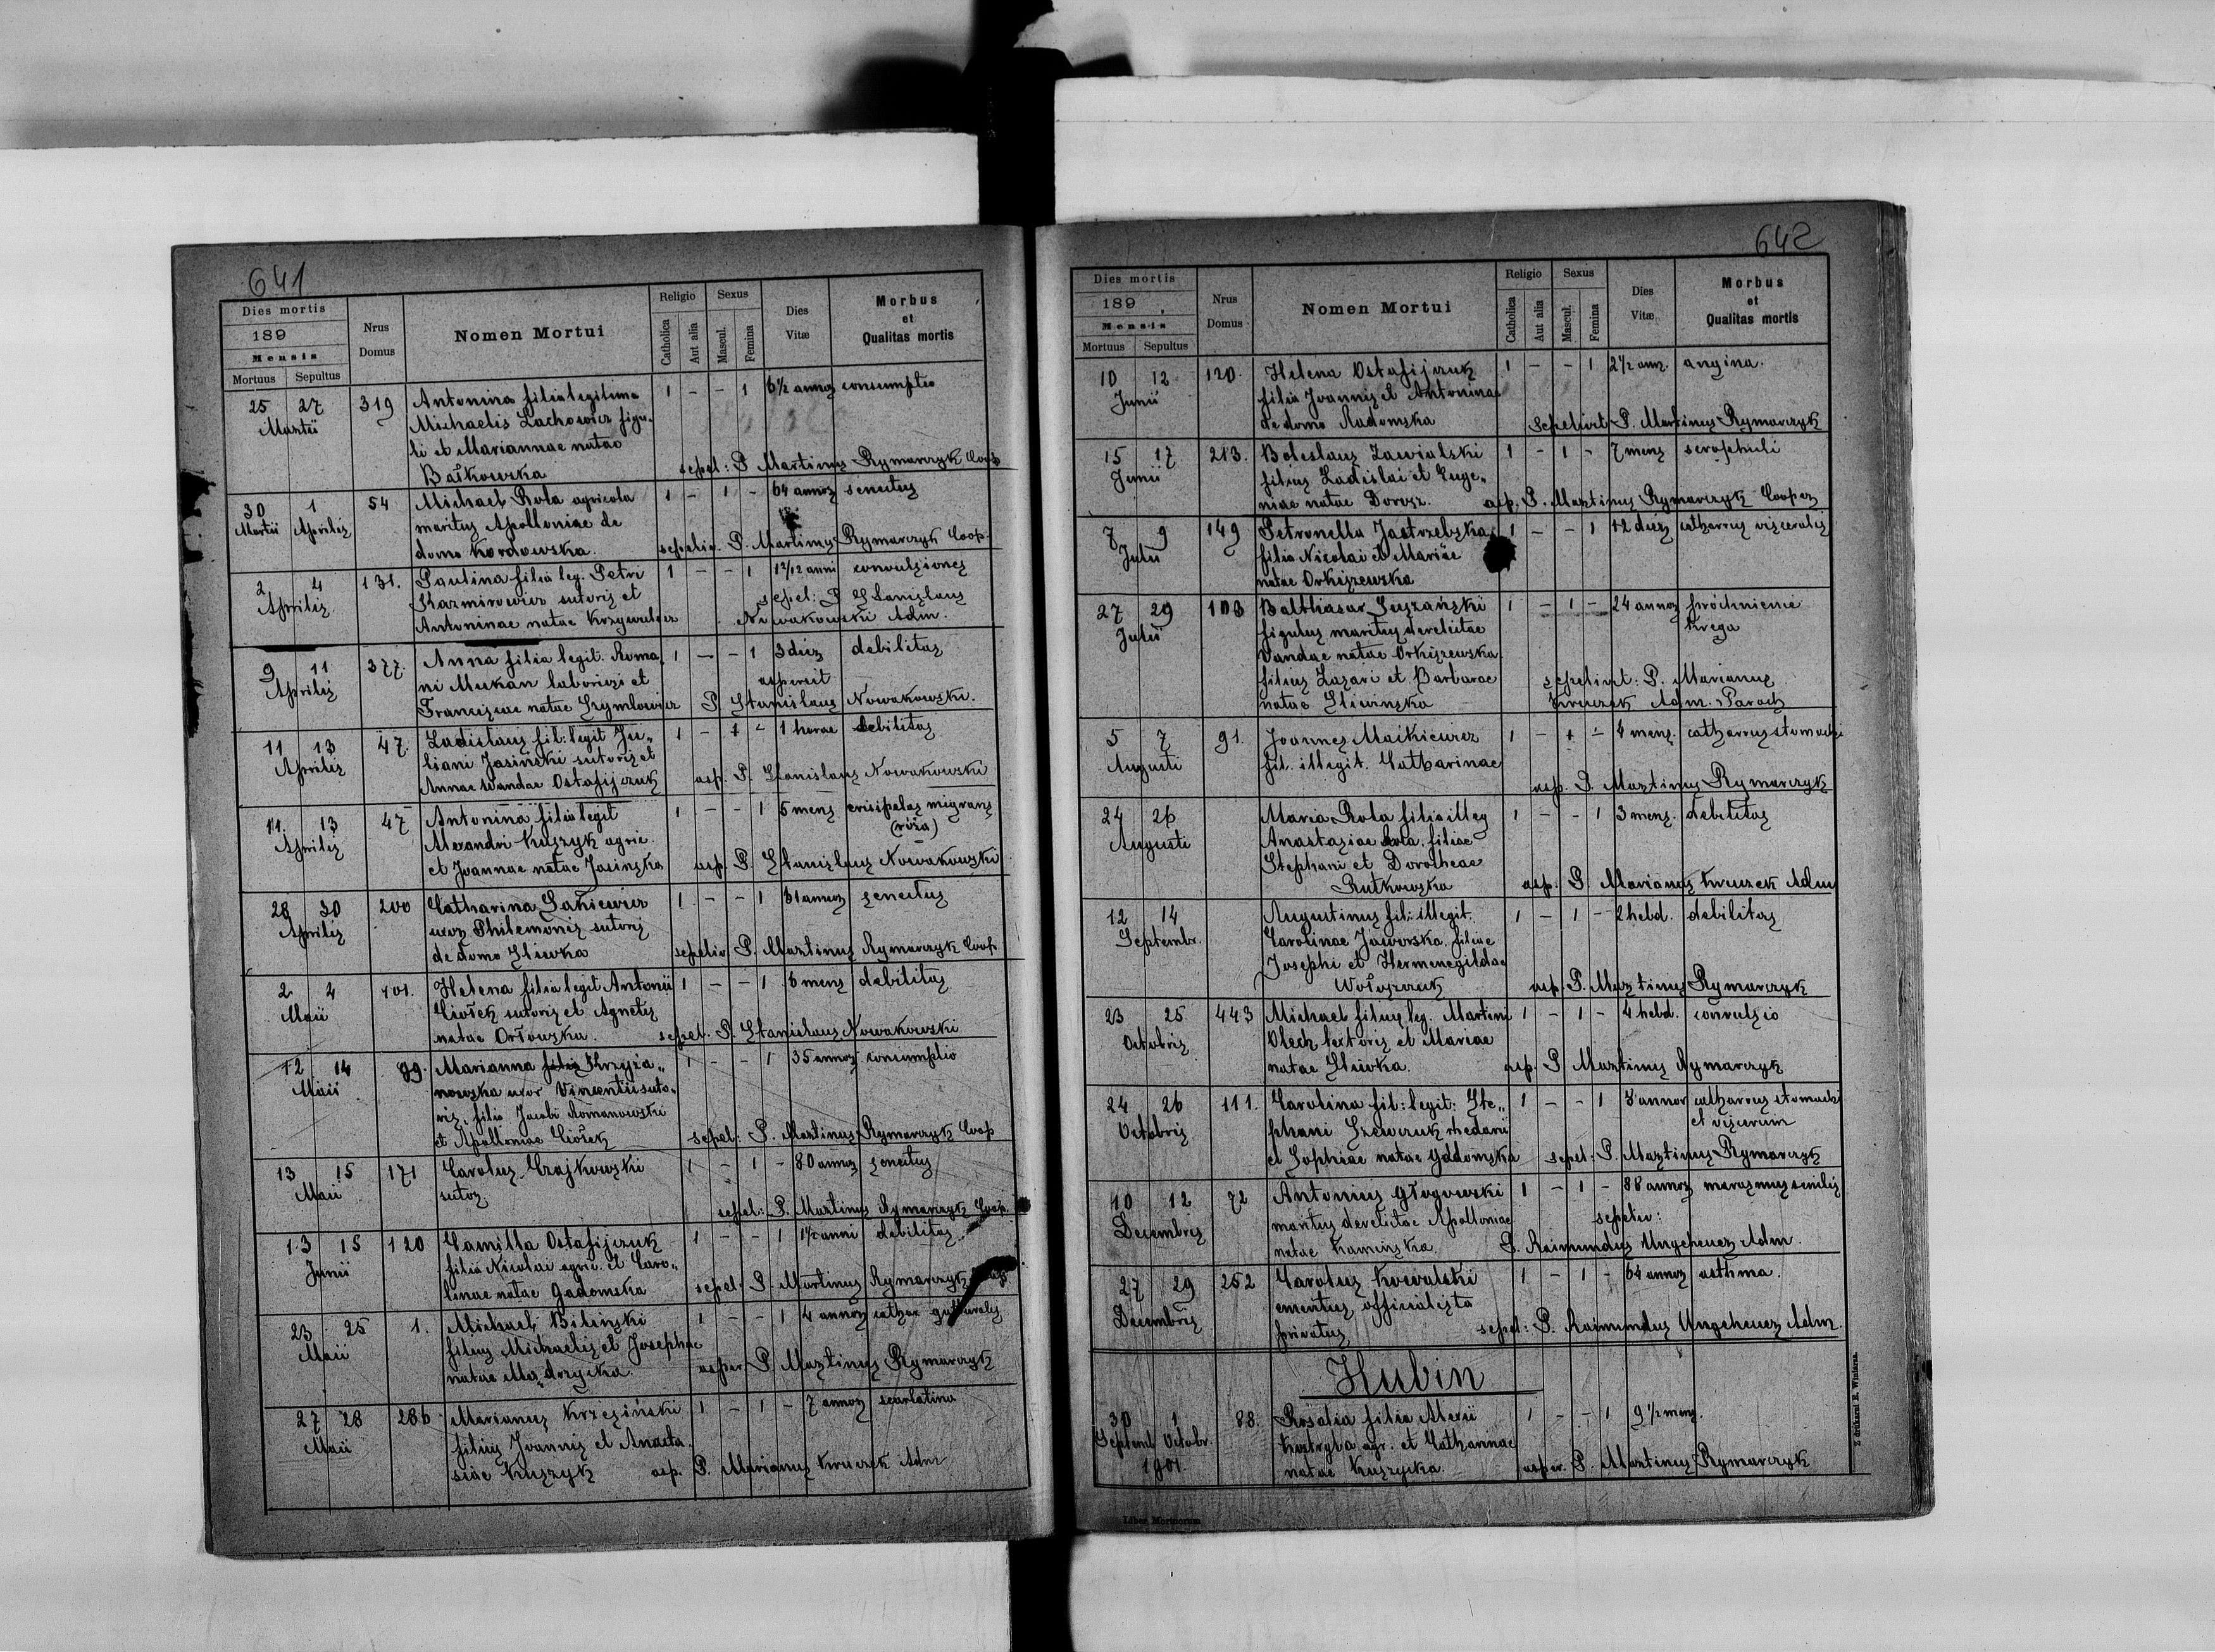 641
Dies mortis
189
Mensis
Mortuus Sepultus
Nrus Domus
Nomen Mortui
Religio
Catholica Aut alia
Sexus
Mascul. Femina
Dies Vitæ
Morbus et Qualitas mortis
25 27 319 Antonina filia legitima 1 - - 1 6½ annor consumptio
Martii Michaelis Lachowicz figu„
li et Mariannae natae
Bałkowska sepel: P. Martinus Rymarczyk Coop
30 1 54 Michael Rola agricola 1 - 1 - 64 annor senectus
Martii Aprilis maritus Apolloniae de
domo Kordowska. sepeliv. P. Martinus Rymarczyk Coop.
2 4 131. Paulina filia leg. Petri 1 - - 1 1 2/12 anni convulsiones
Aprilis Kazmirowicz sutoris et sepel: P. Stanislaus
Antoninae natae Nowakowski Adm.
9 11 377. Anna filia legit. Roma 1 - - 1 3 dies debilitas
Aprilis ni Mukan laboriosi et aspersit
Franciscae natae Szymlowicz P. Stanislaus Nowakowski.
11 13 47. Ladislaus fil: legit Ju„ 1 - 1 - 1 horae debilitas
Aprilis liani Jasiński sutoris et
Annae Wandae Ostafijczuk asp. P. Stanislaus Nowakowski
11. 13 47 Antonina filia legit 1 - - 1 5 mens erisipelas migrans
Aprilis Alexandri Kuszyk agric. (róża)
et Joannae natae Jasinska asp. P. Stanislaus Nowakowski
28 30 200 Catharina Sakiewicz 1 - - 1 61 annor senectus
Aprilis uxor Philemonis sutoris
de domo Sliwka sepeliv P. Martinus Rymarczyk Coop.
2 4 401. Helena filia legit Antonii 1 - - 1 6 mens debilitas
Maii Ciołek sutoris et Agnetis
natae Orłowska. sepel. P. Stanislaus Nowakowski
12 14 99. Marianna filia Krzyża„ 1 - - 1 35 annor consumptio
Maii nowska uxor Vincentii suto„
ris, filia Jacobi Romanowski
et Apolloniae Ciołek sepel: P. Martinus Rymarczyk Coop
13 15 171 Carolus Czajkowski 1 - 1 - 80 annor senectus
Maii sutor
sepel: P. Martinus Rymarczyk Coop.
13 15 120 Camilla Ostafijczuk 1 - - 1 1½ anni debilitas
Junii filia Nicolai agric. et Caro„
linae natae Gadomska sepel. P. Martinus Rymarczyk
23 25 1. Michael Bilinski 1 - - 1 4 annor cathar gutturalis
Maii filius Michaelis et Josephae
natae Mądrzycka. asper. P. Martinus Rymarczyk
27 28 286 Marianus Krzesiński 1 - 1 - 7 annor scarlatina
Maii filius Joannis et Anasta
siae Kuszyk asp. P. Marianus Kruczek Adm
642
Dies mortis
189 .
Mensis
Mortuus Sepultus
Nrus Domus
Nomen Mortui
Religio
Catholica Aut alia
Sexus
Mascul. Femina
Dies Vitæ
Morbus et Qualitas mortis
10 12 120. Helena Ostafijczuk 1 - - 1 2½ ann. angina.
Junii filia Joannis et Antoninae
de domo Radomska Sepelivit P. Martinus Rymarczyk
15 17 213. Boleslaus Zawialski 1 - 1 - 7 mens scrophuli
Junii filius Ladislai et Euge„
niae natae Dorosz. asp. P. Martinus Rymarczyk Cooper
7 9 149 Petronella Jastrzebska 1 - - 1 12 dies catharrus visceralis
Julii filia Nicolai et Mariae
natae Orkiszewska
27 29 103 Balthasar Suszański 1 - 1 - 24 annor próchnienie
Julii figulus maritus derelictae kręga
Vandae natae Orkiszewska
filius Lazari et Barbarae sepelivit: P. Marianus
natae Sliwinska Kruczek Adm. Paroch
5 7 91. Joannes Maikiewicz 1 - 1 - 4 mens. catharrus stomachi
Augusti fil. illegit. Catharinae
asp. P. Martinus Rymarczyk
24 26 Maria Rola filia illeg 1 - - 1 3 mens. debilitas
Augusti Anastasiae Rola, filiae
Stephani et Dorotheae
Rutkowska asp. P. Marianus Kruczek Adm
12 14 Augustinus fil: illegit. 1 - 1 - 2 hebd. debilitas
Septembr. Carolinae Jaworska, filiae
Josephi et Hermenegildae
Wołoszczuk asp. P. Martinus Rymarczyk
23 25 443 Michael filius leg. Martini 1 - 1 - 4 hebd. convulsio
Octobris Olech textoris et Mariae
natae Sliwka. asp. P Martinus Rymarczyk
24 26 111. Carolina fil: legit: Ste„ 1 - - 1 8 annor catharrus stomachi
Octobris phani Szewczuk rhedarii et viscerum
et Sophiae natae Gadomska sepel: P. Martinus Rymarczyk
10 12 72 Antonius Głogowski 1 - 1 - 88 annor marasmus senilis
Decembris maritus derelictae Apolloniae sepeliv:
natae Kaminska. P. Raimundus Ungeheuer Adm.
27 29 252 Carolus Kowalski 1 - 1 - 64 annor asthma.
Decembris emeritus officialista
privatus sepel: P. Raimundus Ungeheuer Adm.
Hubin
30 1 88. Rosalia filia Alexii 1 - - 1 9½ mens.
Septemb. Octobr. Kostryba agr. et Catharinae
1901. natae Kuszycka. asper. P. Martinus Rymarczyk
Liber Mortuorum
Z drukarni E. Winiarza.